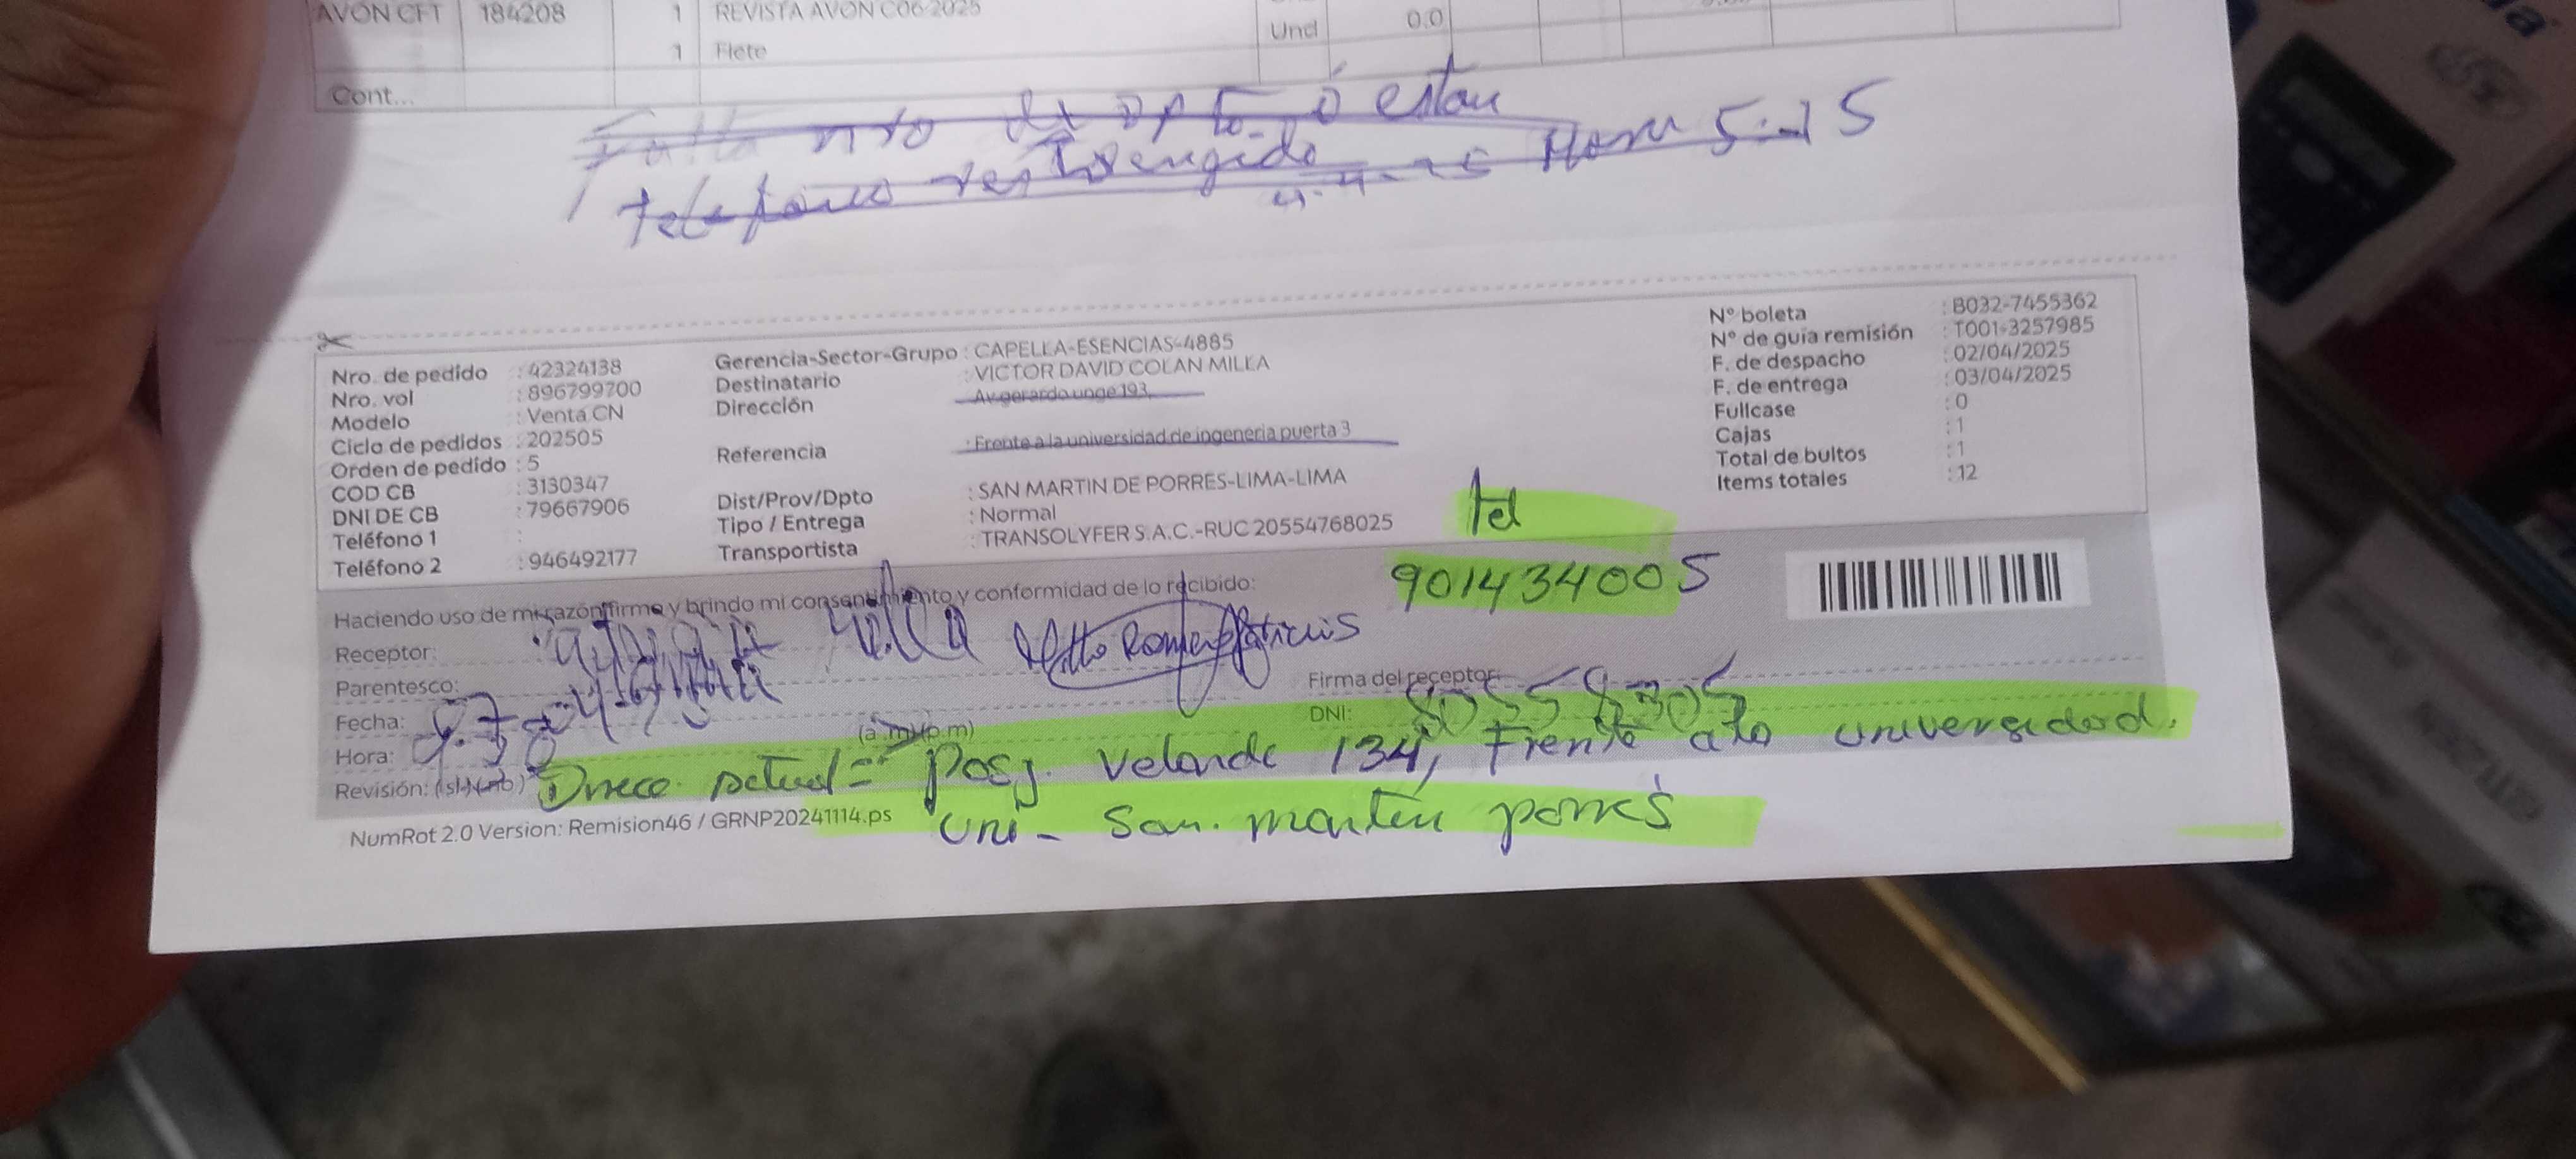 AVON CFT 184208 1 REVISTA AVON C06-2025
1 Flete Und 0.0
Cont...
Falta nro de dpto. ó estau
telefono restringido 4-4-25 Hora 5:15
Nro. de pedido : 42324138
Nro. vol : 896799700
Modelo : Venta CN
Ciclo de pedidos : 202505
Orden de pedido : 5
COD CB : 3130347
DNI DE CB : 79667906
Teléfono 1 :
Teléfono 2 : 946492177
Gerencia-Sector-Grupo : CAPELLA-ESENCIAS-4885
Destinatario : VICTOR DAVID COLAN MILLA
Dirección : Av gerardo unge 193,
Referencia : Frente a la universidad de ingeneria puerta 3
Dist/Prov/Dpto : SAN MARTIN DE PORRES-LIMA-LIMA
Tipo / Entrega : Normal
Transportista : TRANSOLYFER S.A.C.-RUC 20554768025
N° boleta : B032-7455362
N° de guía remisión : T001-3257985
F. de despacho : 02/04/2025
F. de entrega : 03/04/2025
Fullcase : 0
Cajas : 1
Total de bultos : 1
Items totales : 12
tel
901434005
Haciendo uso de mi razón firmo y brindo mi consentimiento y conformidad de lo recibido:
Receptor: Milla
Parentesco:
Firma del receptor:
Fecha:
DNI:
Hora: (a.m)(p.m)
Revisión: (si)(no) Direcc. actual = Pasj. Velarde 134, Frente a la universidad.
uni - San. martin porres
NumRot 2.0 Version: Remision46 / GRNP20241114.ps